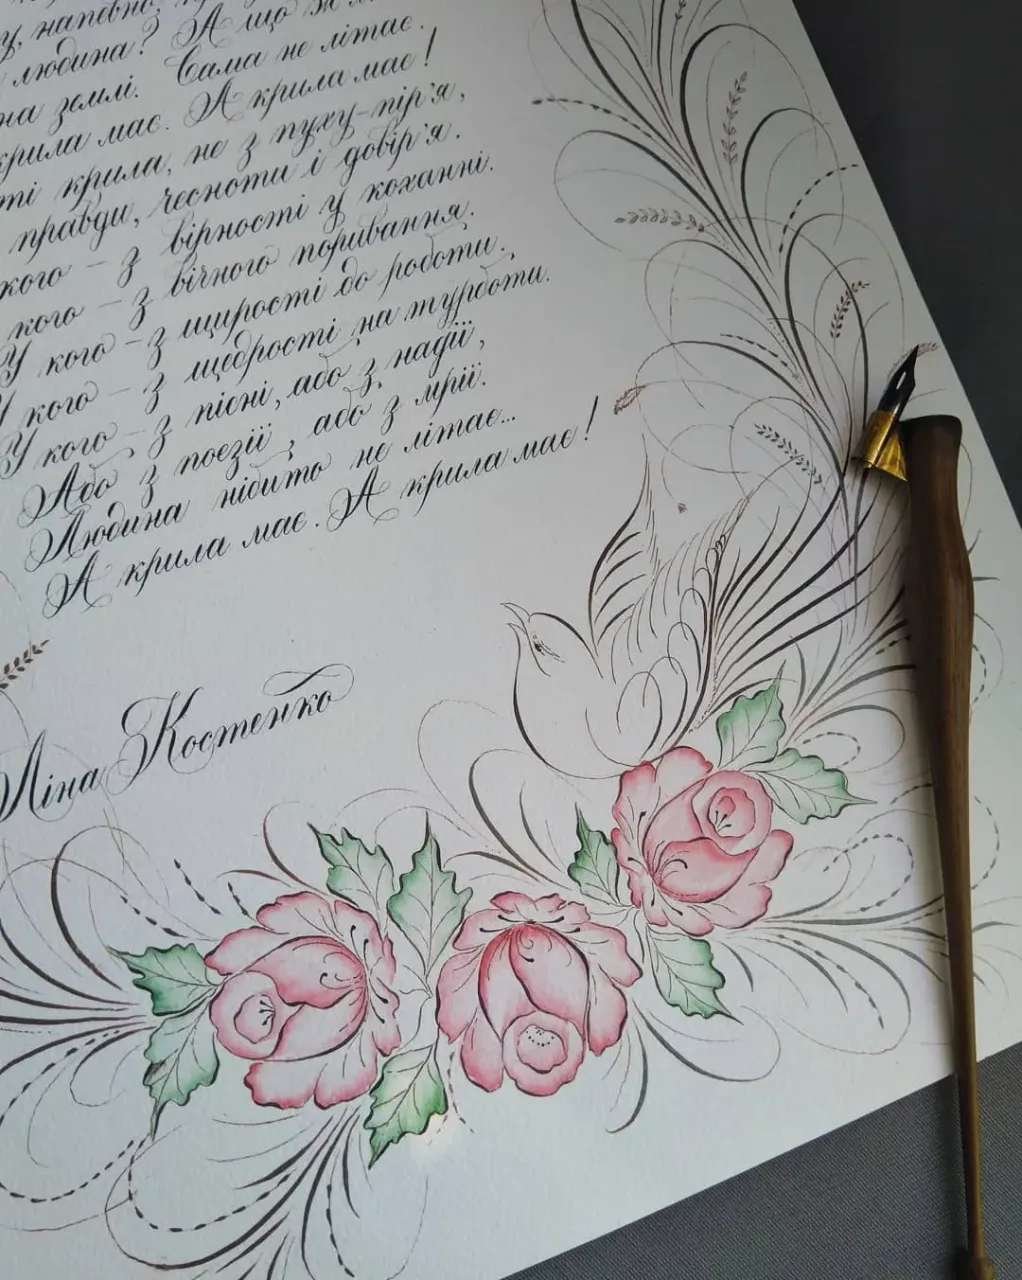 у, напевно,
людина? А що ж
на землі. Сама не літає.
крила має. А крила має!
ті крила, не з пуху-пір'я,
правди, чесноти і довір'я.
кого – з вірності у коханні.
кого – з вічного поривання.
У кого – з щирості до роботи.
У кого – з щедрості на турботи.
У кого – з пісні, або з надії,
Або з поезії, або з мрії.
Людина нібито не літає...
А крила має. А крила має!
Ліна Костенко